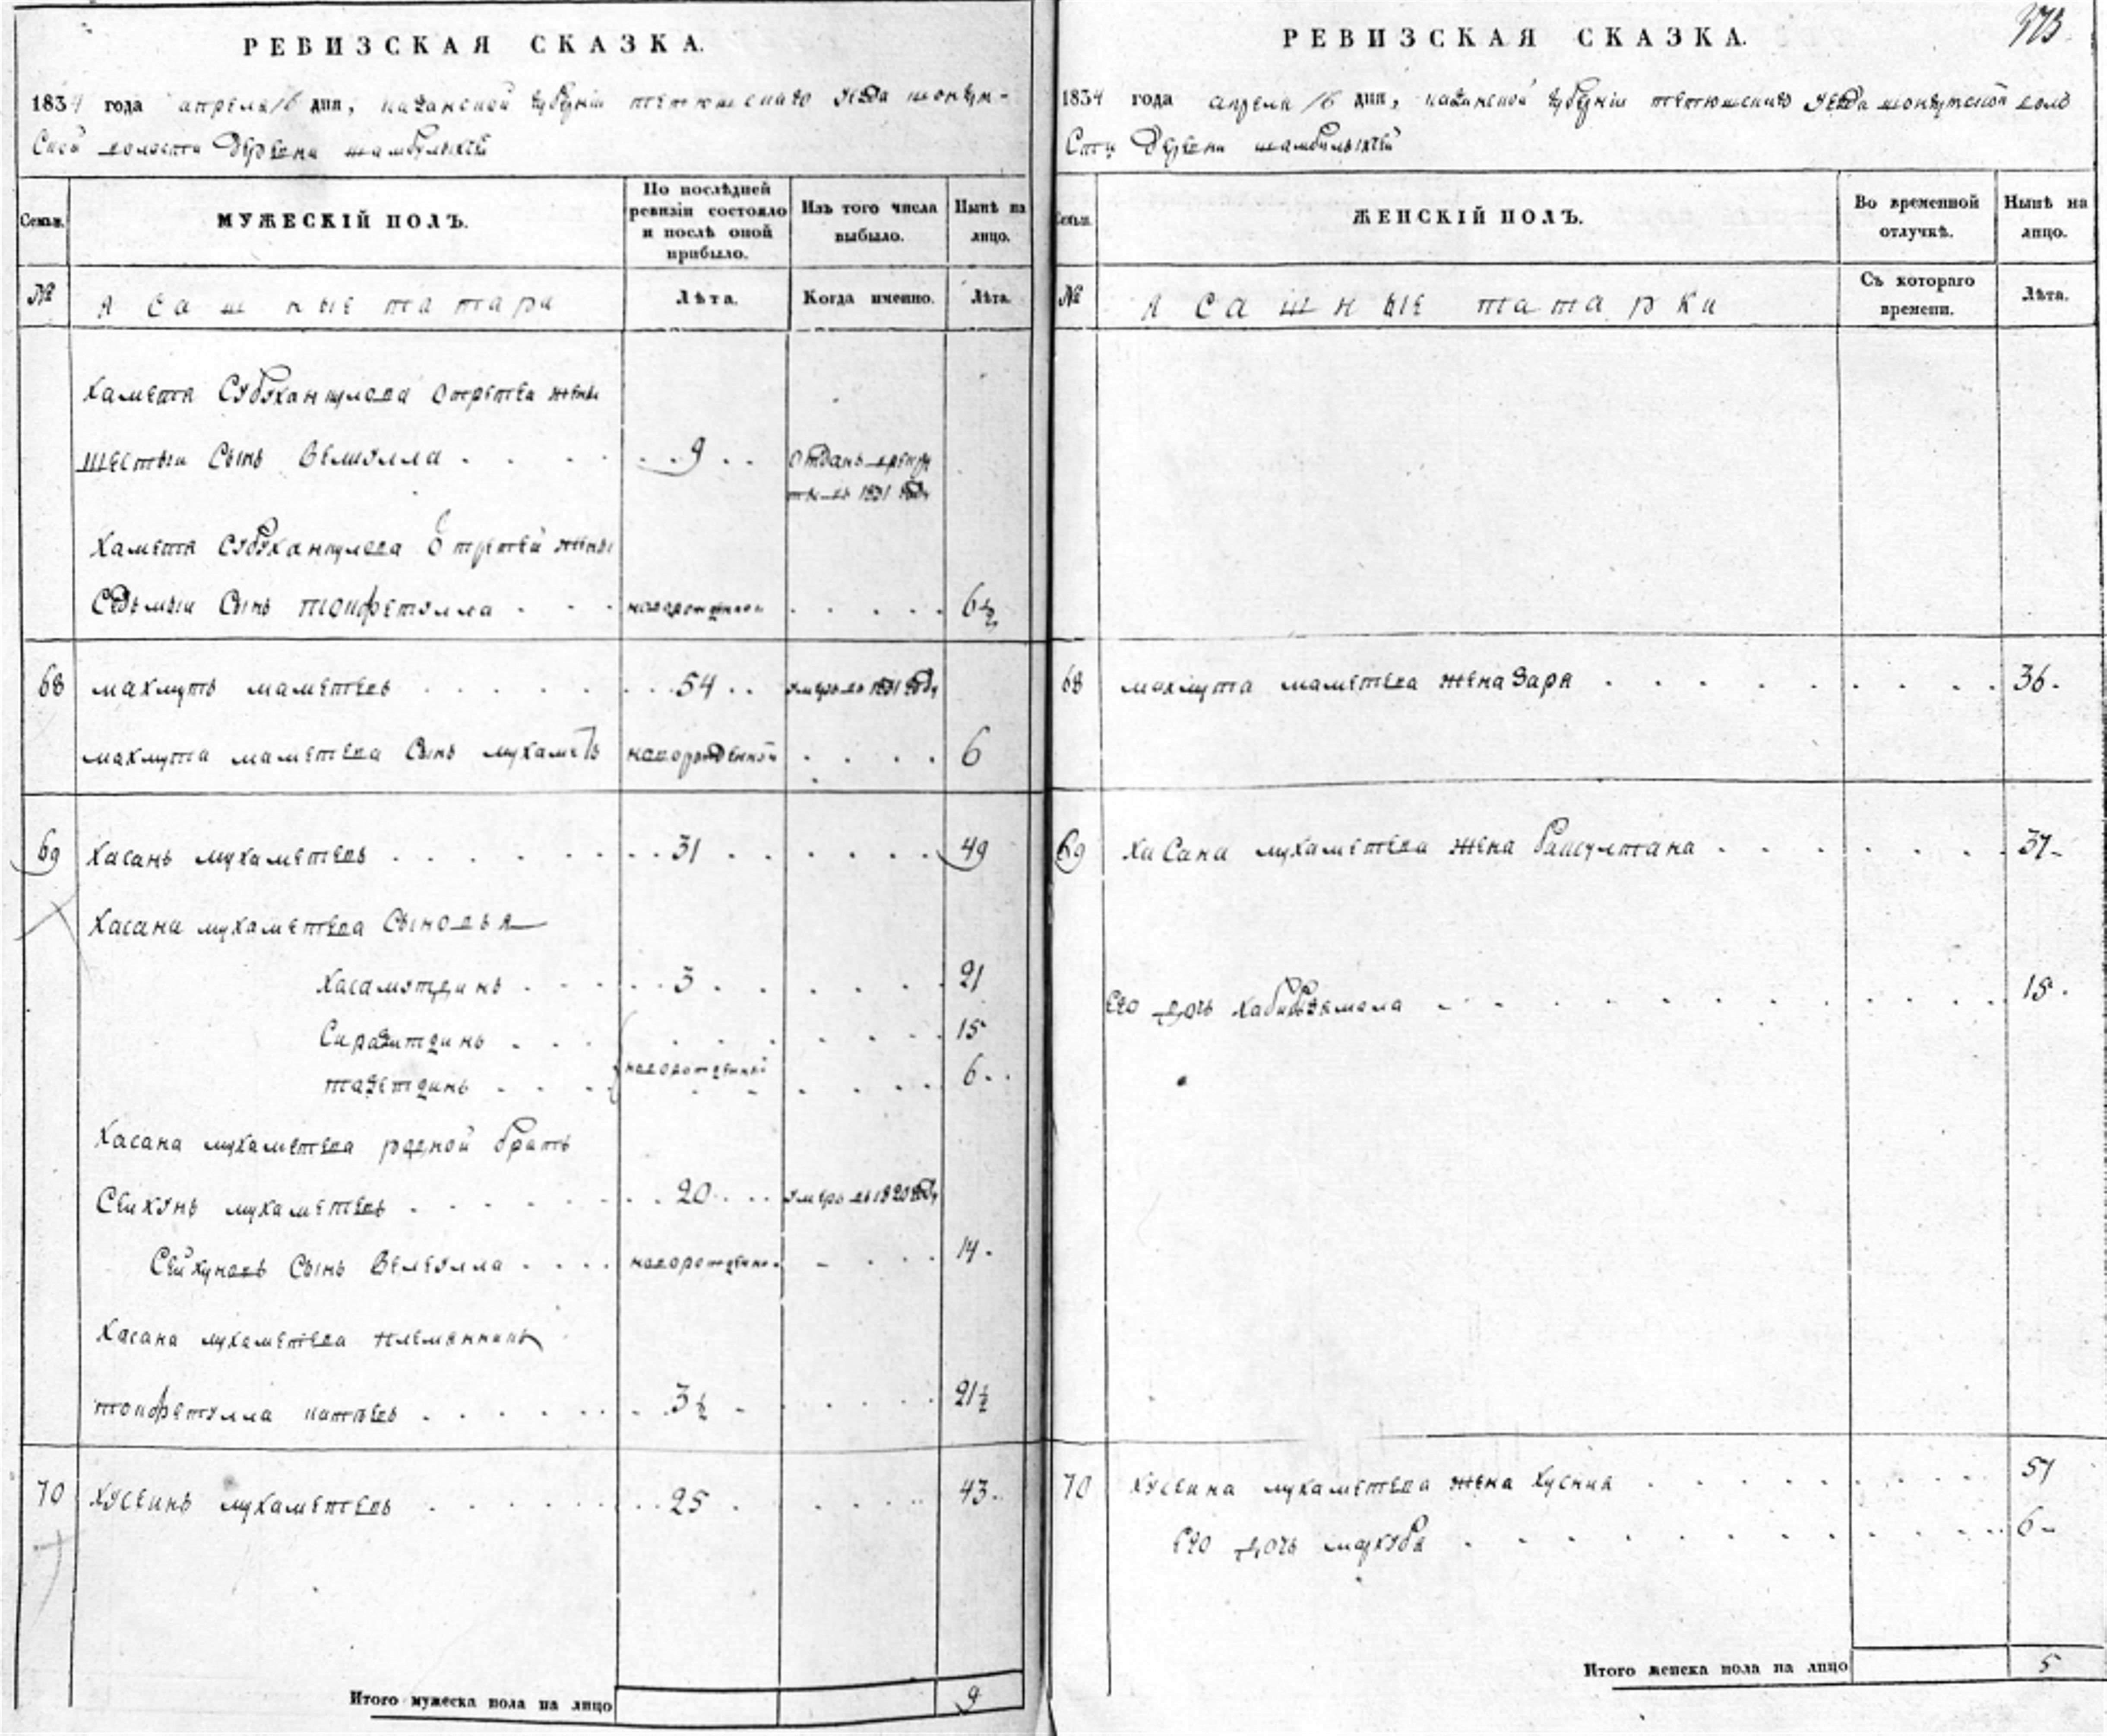 РЕВИЗСКАЯ СКАЗКА.
1834 года апреля 16 дня, казанской губерніи тетюшскаго уезда шонгут-
ской волости деревни шамбулыхчей
Семьи.
МУЖЕСКІЙ ПОЛЪ.
По послѣдней ревизіи состояло и послѣ оной прибыло.
Изъ того числа выбыло.
Нынѣ на лицо.
№
Ясашные татара
Лѣта.
Когда именно.
Лѣта.
Хамета Субханкулова отретеа жены
шестыи сынъ Велиулла . . . . 9 . . отданъ врекру
ты въ 1831 году
Хамета Субханкулова отретей жены
седьмыи сынъ тохфетулла . . . новорожденной . . . . 6½
68 махмутъ маметевъ . . . . . 54 . . умеръ въ 1831 году
махмута маметева сынъ мухаметъ новорожденной . . . . 6
69 Хасанъ мухаметевъ . . . . . 31 . . . . . 49
Хасана мухаметева сыновья
Хасамутдинъ . . . 3 . . . . . 21
Сиразитдинъ . . . . . . . 15
новорожденный
тазетдинъ . . . . . . . 6 . .
Хасана мухаметева родной братъ
Сеихунъ мухаметевъ . . . . . 20 . . . умеръ въ 1820 году
Сейхуновъ сынъ Велеулла . . . . новорожденно . . . . 14 .
Хасана мухаметева племянникъ
тохфетулла каттевъ . . . . . 3½ . . . . . 21½
70 хусеинъ мухаметевъ . . . . . 25 . . . . . 43 .
Итого мужеска пола на лицо 9
373
РЕВИЗСКАЯ СКАЗКА.
1834 года апреля 16 дня, казанской губерніи тетюшскаго уезда шонгутской воло
сти деревни шамбулыхчей
Семьи.
ЖЕНСКІЙ ПОЛЪ.
Во временной отлучкѣ.
Нынѣ на лицо.
№
Ясашные татарки
Съ котораго времени.
Лѣта.
68 махмута маметева жена Заря . . . . . . . . 36 .
69 хасана мухаметева жена баисултана . . . . . . . 37
его дочь хабибзямала . . . . . . . . . 15 .
70 хусеина мухаметева жена хусния . . . . . . . 51
его дочь махуба . . . . . . . . . 6
Итого женска пола на лицо 5